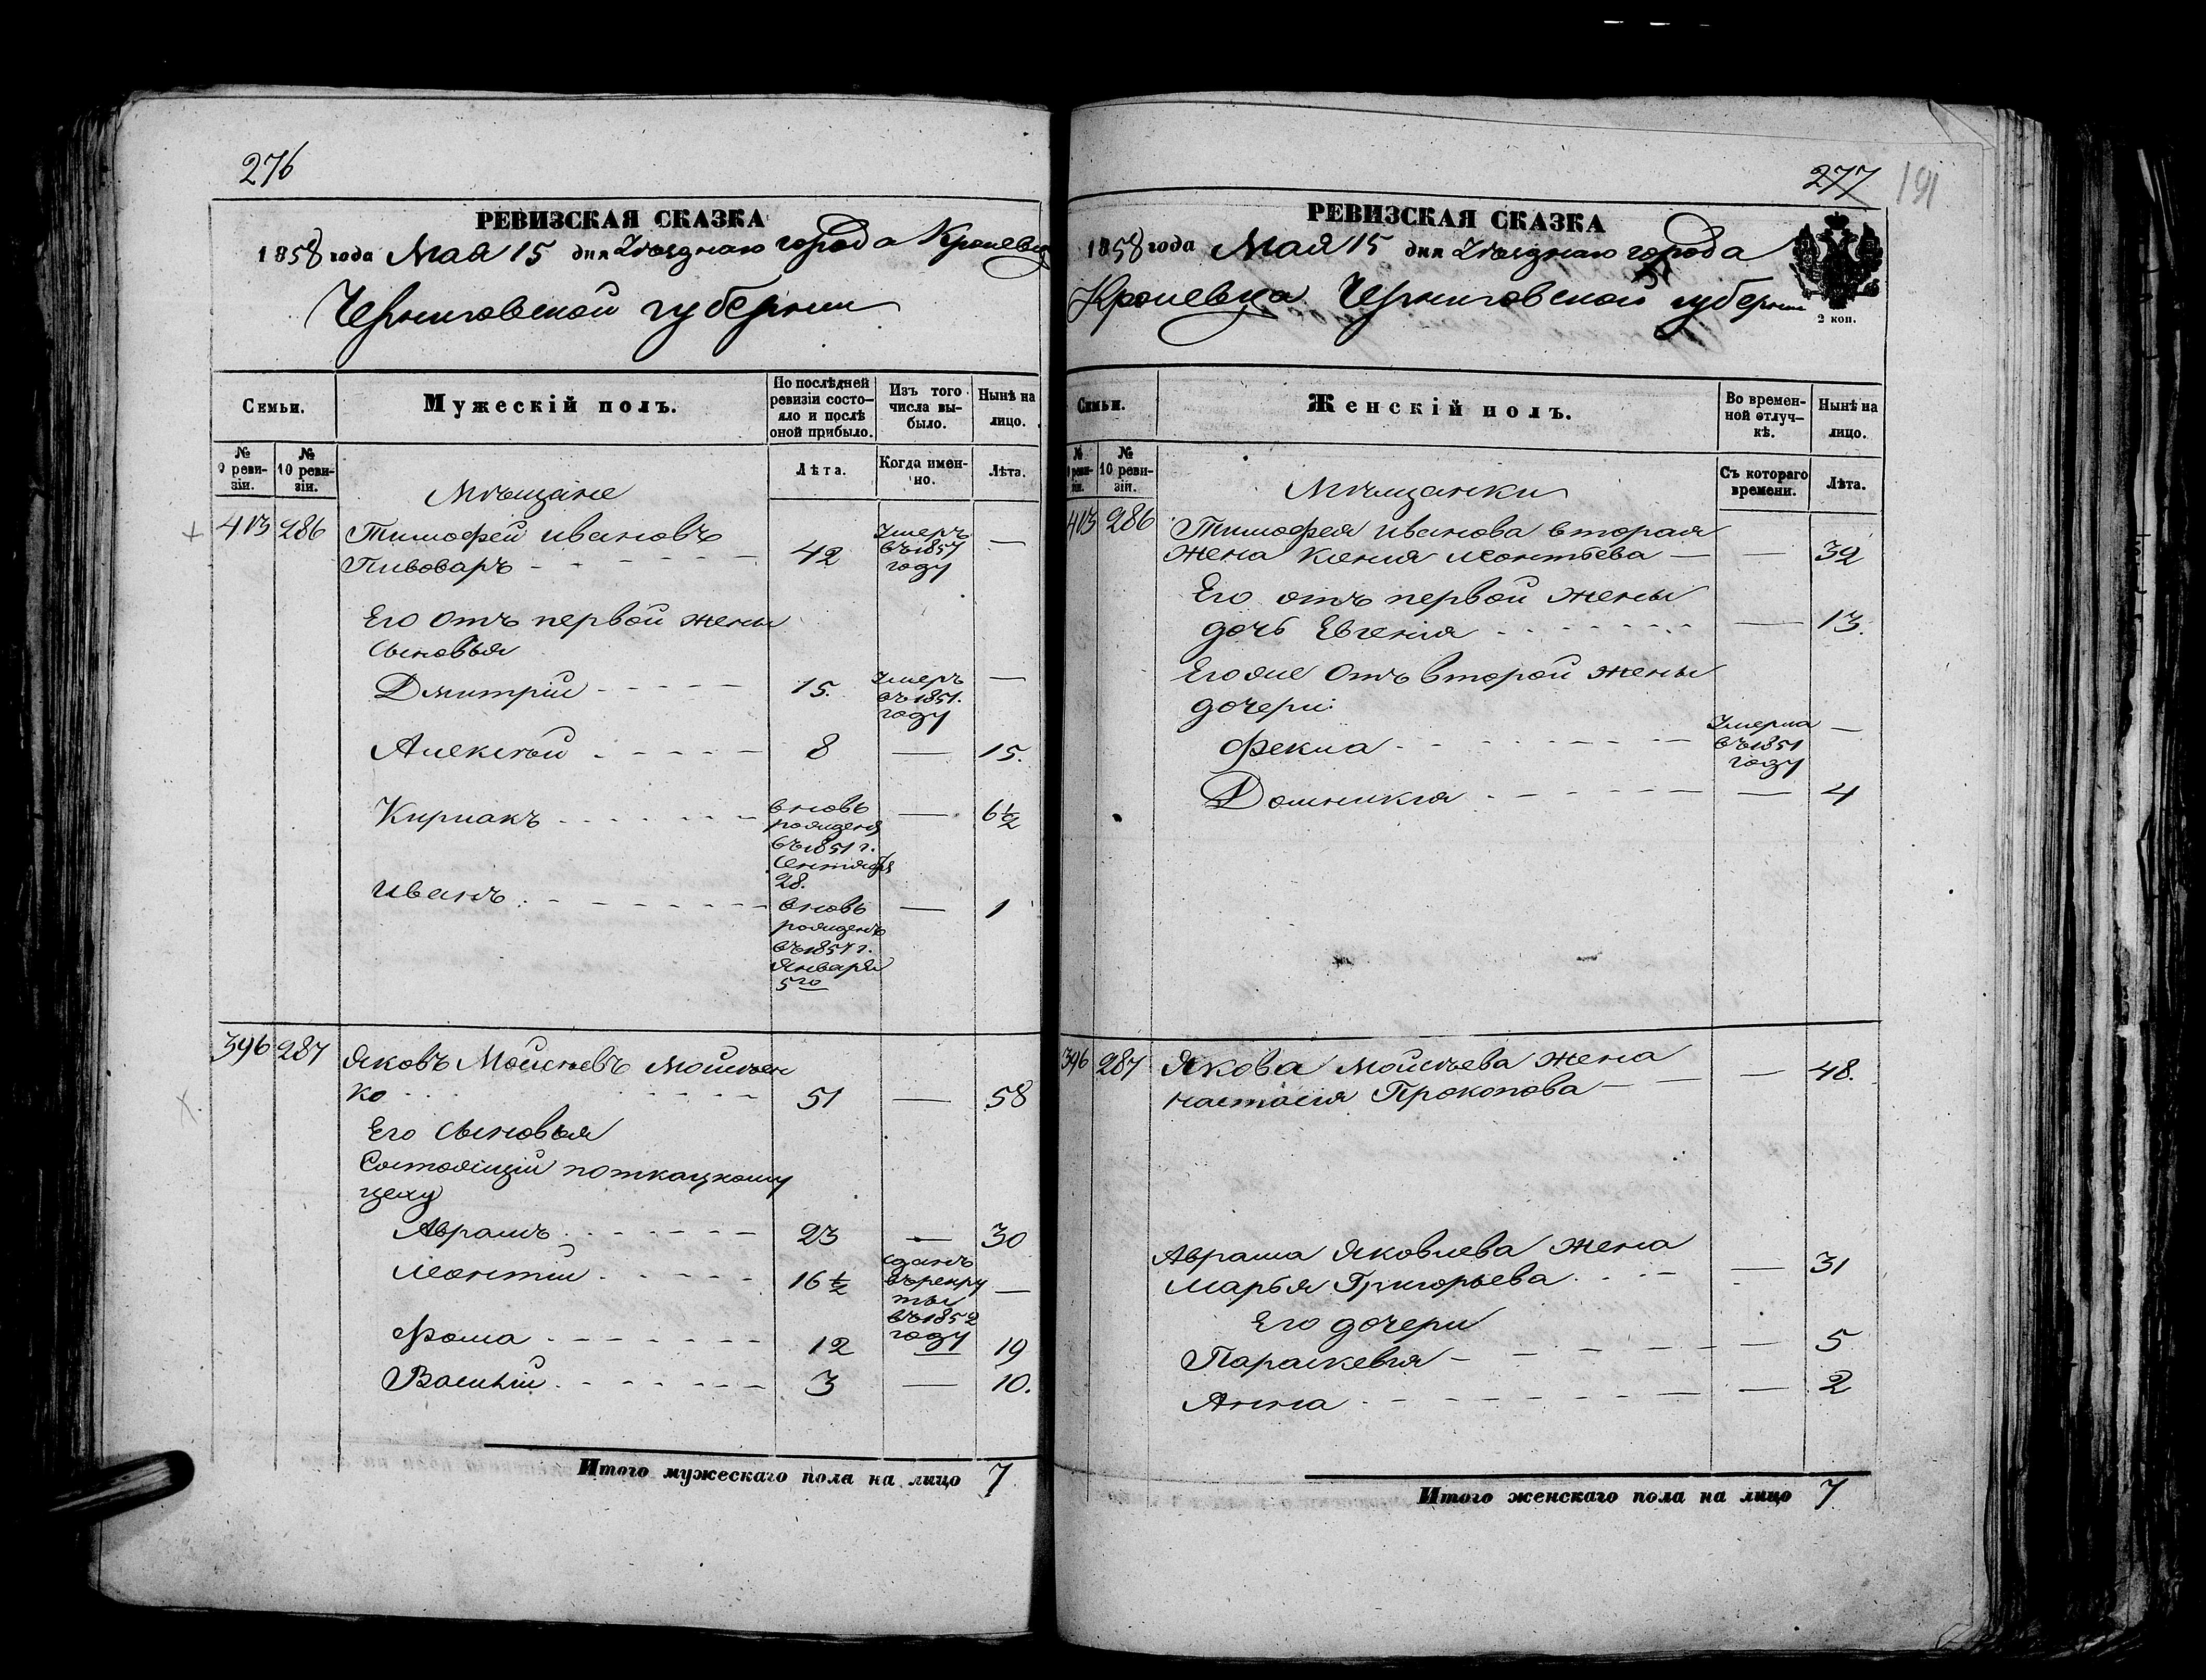 276
РЕВИЗСКАЯ СКАЗКА
1858 года Мая 15 дня Уѣзднаго города Кролевца
Черниговской губерніи
Семьи.
Мужескій полъ.
По послѣдней ревизіи состояло и послѣ оной прибыло.
Изъ того числа выбыло.
Нынѣ на лицо.
№ 9 ревизіи.
№ 10 ревизіи.
Лѣта.
Когда именно.
Лѣта.
Мѣщане
413 286 Тимофей Ивановъ
Пивоваръ 42 Умеръ въ 1857 году —
Его отъ первой жены
сыновья
Дмитрій 15. Умеръ въ 1851. году —
Алексѣй 8 — 15.
Киріакъ вновь рожденъ въ 1851 г. Сентября 28. — 6 ½
Иванъ вновь рожденъ въ 1857 г. Января 5го — 1
396 287 Яковъ Мойсѣевъ Мойсѣен
ко 51 — 58
Его сыновья
Состоящій по ткацкому
цеху
Аврамъ 23 — 30
Леонтій 16 ½ сданъ въ рекруты въ 1852 году —
Фома 12 — 19
Василій 3 — 10.
Итого мужескаго пола на лицо 7
277 191
РЕВИЗСКАЯ СКАЗКА
1858 года Мая 15 дня Уѣзднаго города
Кролевца Черниговской губерніи
2 коп.
Семьи.
Женскій полъ.
Во временной отлучкѣ.
Нынѣ на лицо.
№ 9 ревизіи.
№ 10 ревизіи.
Съ котораго времени.
Лѣта.
Мѣщанки
413 286 Тимофея Иванова вторая
жена Ксенія Леонтьева — 39
Его отъ первой жены
дочь Евгенія — 13.
Его же отъ второй жены
дочери:
Фекла Умерла въ 1851 году —
Домникія — 4
396 287 Якова Мойсѣева жена
Настасія Прокопова — 48.
Аврама Яковлева жена
Марья Григорьева — 31
Его дочери
Параскевія — 5
Анна — 2
Итого женскаго пола на лицо 7